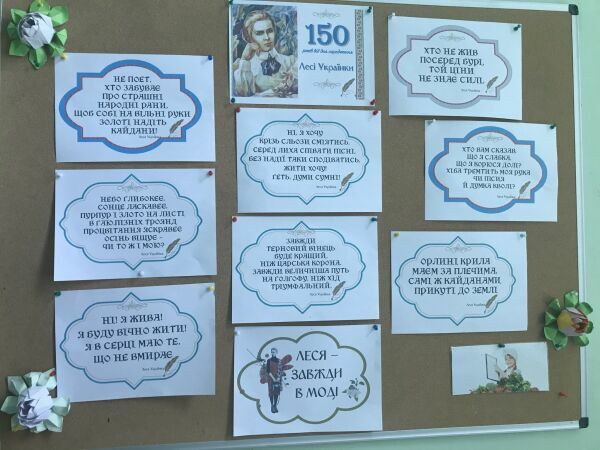 НЕ ПОЕТ,
ХТО ЗАБУВАЄ
ПРО СТРАШНІ
НАРОДНІ РАНИ,
ЩОБ СОБІ НА ВІЛЬНІ РУКИ
ЗОЛОТІ НАДІТЬ
КАЙДАНИ!
Леся Українка
НЕБО ГЛИБОКЕЄ,
СОНЦЕ ЛАСКАВЕЄ,
ПУРПУР І ЗЛОТО НА ЛИСТІ,
В ГАЮ ПІЗНІХ ТРОЯНД
ПРОЦВІТАННЯ ЯСКРАВЕЄ
ОСІНЬ ВІЩУЄ -
ЧИ ТО Ж І МОЮ?
Леся Українка
НІ! Я ЖИВА!
Я БУДУ ВІЧНО ЖИТИ!
Я В СЕРЦІ МАЮ ТЕ,
ЩО НЕ ВМИРАЄ.
Леся Українка
150
років від дня народження
Лесі Українки
НІ, Я ХОЧУ
КРІЗЬ СЛЬОЗИ СМІЯТИСЬ,
СЕРЕД ЛИХА СПІВАТИ ПІСНІ,
БЕЗ НАДІЇ ТАКИ СПОДІВАТИСЬ,
ЖИТИ ХОЧУ!
ГЕТЬ, ДУМИ СУМНІ!
Леся Українка
ЗАВЖДИ
ТЕРНОВИЙ ВІНЕЦЬ
БУДЕ КРАЩИЙ,
НІЖ ЦАРСЬКА КОРОНА.
ЗАВЖДИ ВЕЛИЧНІША ПУТЬ
НА ГОЛГОФУ, НІЖ ХІД
ТРІУМФАЛЬНИЙ.
Леся Українка
ЛЕСЯ –
ЗАВЖДИ
В МОДІ
ХТО НЕ ЖИВ
ПОСЕРЕД БУРІ,
ТОЙ ЦІНИ
НЕ ЗНАЄ СИЛІ.
Леся Українка
ХТО ВАМ СКАЗАВ,
ЩО Я СЛАБКА,
ЩО Я КОРЮСЯ ДОЛІ?
ХІБА ТРЕМТИТЬ МОЯ РУКА
ЧИ ПІСНЯ
Й ДУМКА КВОЛІ?
Леся Українка
ОРЛИНІ КРИЛА
МАЄМ ЗА ПЛЕЧИМА,
САМІ Ж КАЙДАНАМИ,
ПРИКУТІ ДО ЗЕМЛІ.
Леся Українка